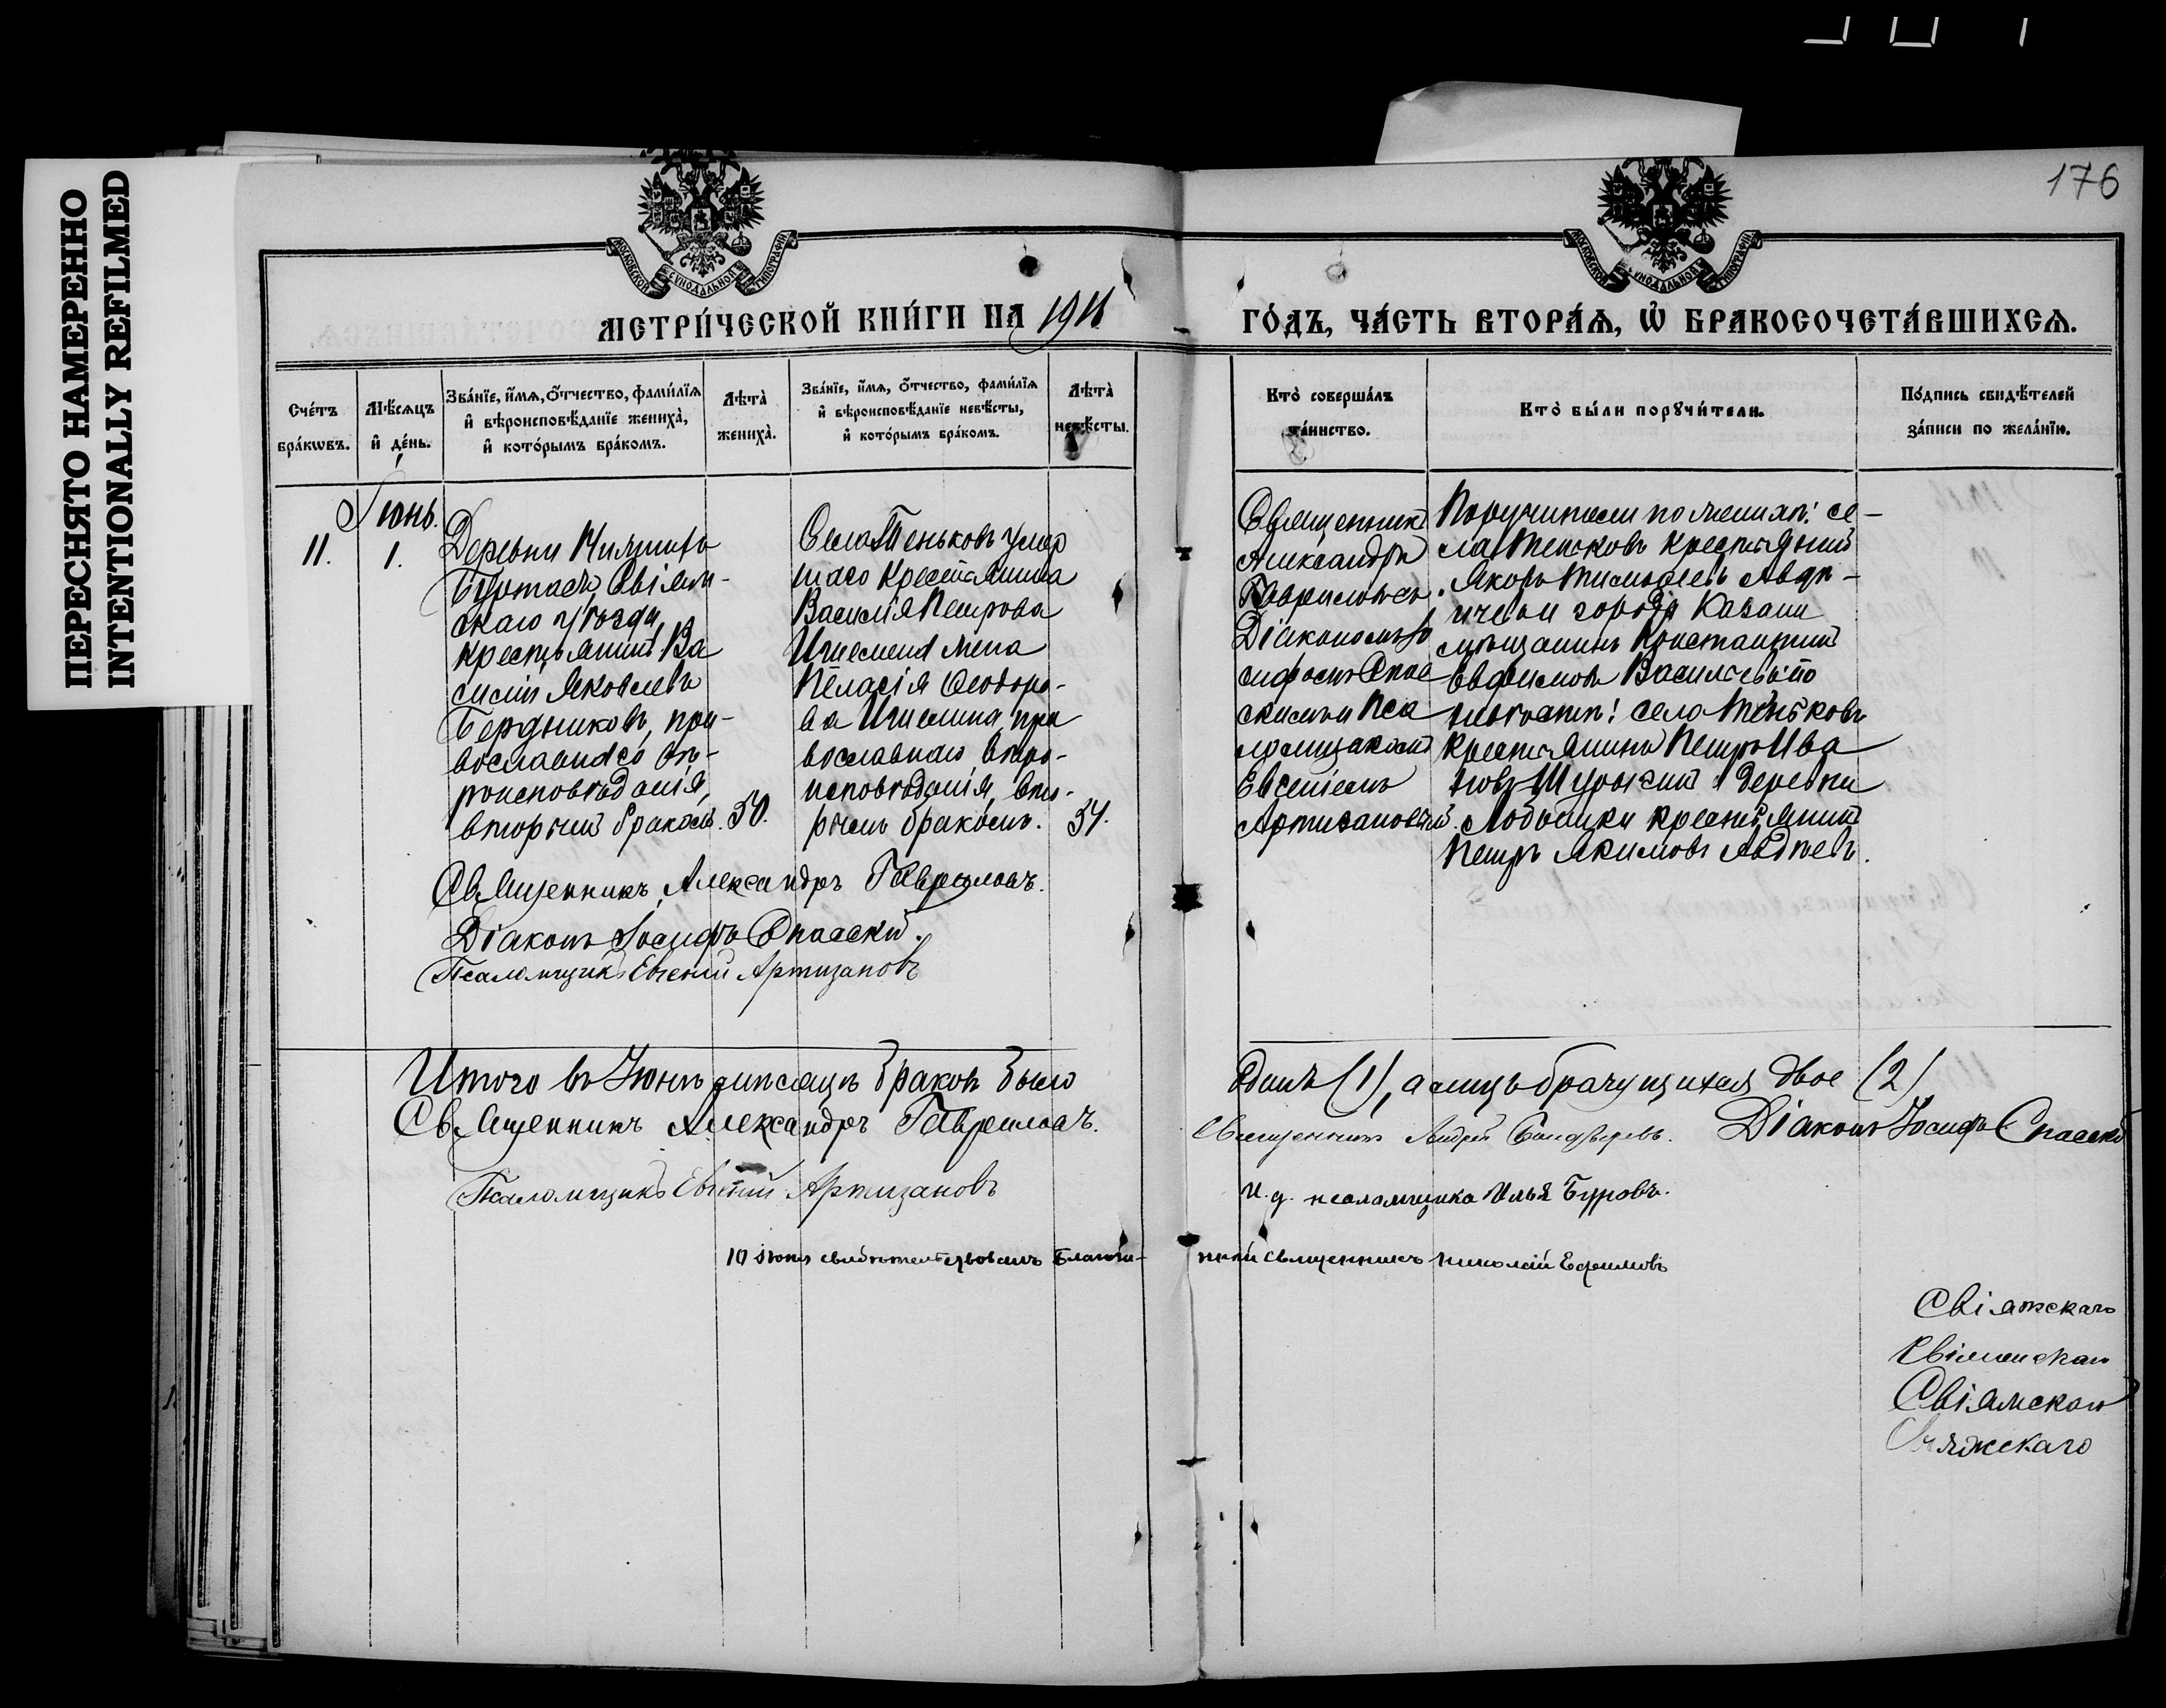 ПЕРЕСНЯТО НАМЕРЕННО
INTENTIONALLY REFILMED
176
МОСКОВСКОЙ СѴНОДАЛЬНОЙ ТИПОГРАФІИ
МОСКОВСКОЙ СѴНОДАЛЬНОЙ ТИПОГРАФІИ
МЕТРИ́ЧЕСКОЙ КНИ́ГИ НА 1911 ГО́ДЪ, ЧА́СТЬ ВТОРА́Ѧ, Ѽ БРАКОСОЧЕТА́ВШИХСѦ.
Сче́тъ бра́кѡвъ.
Мѣ́сѧцъ и҆ де́нь.
Зва́нїе, и҆́мѧ, ѻ҆́тчество, фами́лїѧ и҆ вѣроисповѣ́данїе жениха̀, и҆ кото́рымъ бра́комъ.
Лѣта̀ жениха̀.
Зва́нїе, и҆́мѧ, ѻ҆́тчество, фами́лїѧ и҆ вѣроисповѣ́данїе невѣ́сты, и҆ кото́рымъ бра́комъ.
Лѣта̀ невѣ́сты.
Кто̀ соверша́лъ та́инство.
Кто̀ бы́ли порꙋчи́тели.
По́дпись свидѣ́телей за́писи по жела́нїю.
Іюнь.
11.
1.
Деревни
Буртасъ, Свіяж-
скаго уѣзда,
крестьянинъ Ва
силій Яковлевъ
Бердниковъ, пра-
вославнаго вѣ-
роисповѣданія,
вторымъ бракомъ.
50.
Села Теньковъ умер
шаго крестьянина
Василія Петрова
жена
Пелагія Ѳеодоро-
ва пра
вославнаго вѣро-
исповѣданія, вто-
рымъ бракомъ.
34.
Священникъ
Александръ
Гавриловъ съ
Діакономъ Іо
сифомъ Спас
скимъ и Пса
ломщикомъ
Евгеніемъ
Артизановымъ.
Поручители по женихѣ: се-
ла Теньковъ крестьянинъ
Яковъ Тимофеевъ Авдѣ-
ичевъ и города Казани
мѣщанинъ Константинъ
Евфимовъ Васильевъ; по
невѣстѣ: села Теньковъ
крестьянинъ Петръ Ива
новъ и деревни
крестьянинъ
Петръ Якимовъ Авдѣевъ.
Священникъ Александръ Гавриловъ.
Діаконъ Іосифъ Спасскій.
Псаломщикъ Евгений Артизановъ
Итого въ Іюнѣ мѣсяцѣ браковъ было одинъ (1), а лицъ брачущихся двое (2)
Священникъ Александръ Гавриловъ.
Священникъ Андрей
Діаконъ Іосифъ Спасскій
Псаломщикъ Евгений Артизановъ
И. д. псаломщика Илья Буровъ.
10 іюня свидѣтельствовалъ Благочи-
нный священникъ Николай Ефимовъ
Свіяжскаго
Свіяжскаго
Свіяжскаго